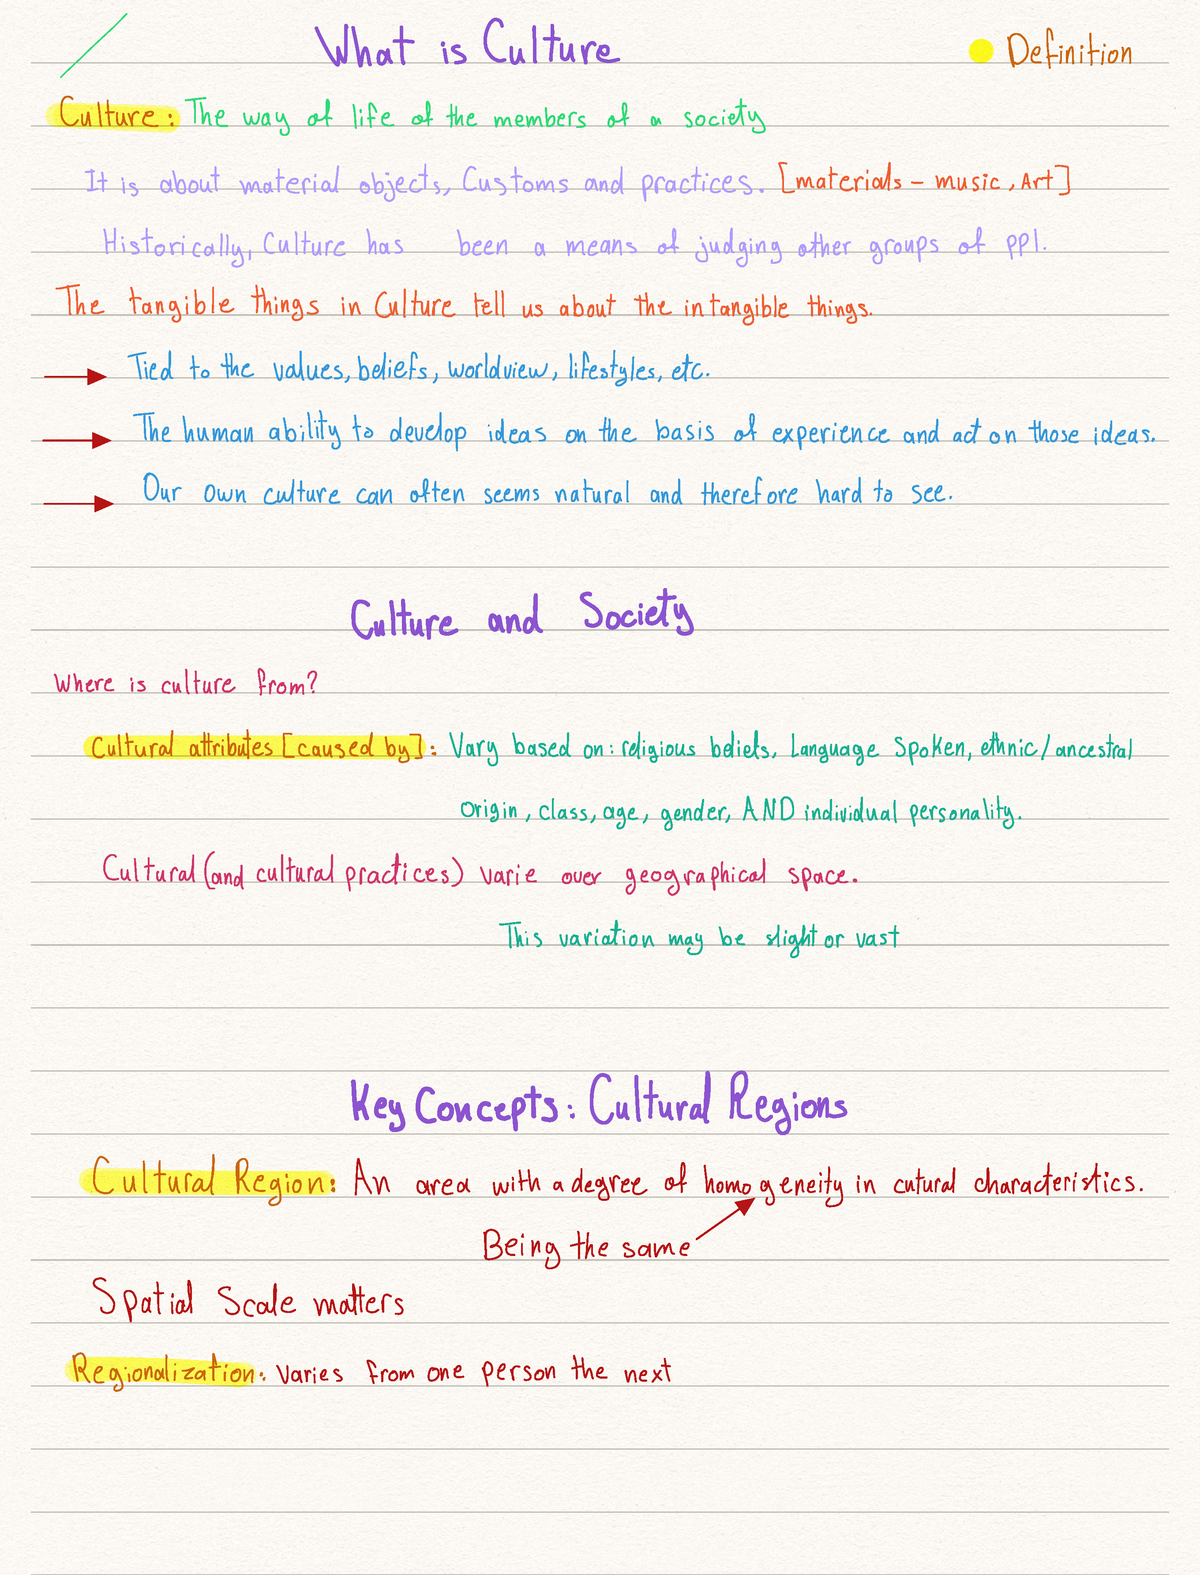 What is Culture
Definition
Culture: The way of life of the members of a society
It is about material objects, Customs and practices. [materials - music, Art]
Historically, Culture has been a means of judging other groups of ppl.
The tangible things in Culture tell us about the intangible things.
Tied to the values, beliefs, worldview, lifestyles, etc.
The human ability to develop ideas on the basis of experience and act on those ideas.
Our own culture can often seems natural and therefore hard to see.
Culture and Society
Where is culture from?
Cultural attributes [caused by]: Vary based on: religious beliefs, Language Spoken, ethnic/ancestral
origin, class, age, gender, AND individual personality.
Cultural (and cultural practices) varie over geographical space.
This variation may be slight or vast
Key Concepts: Cultural Regions
Cultural Region: An area with a degree of homogeneity in cutural characteristics.
Being the same
Spatial Scale matters
Regionalization: Varies from one person the next